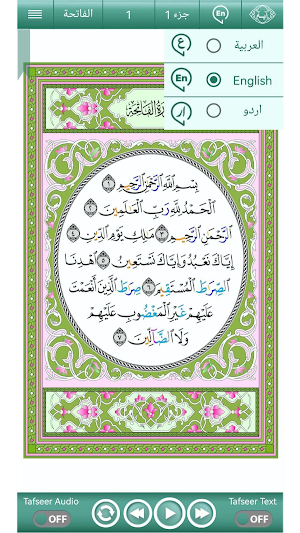 الفاتحة 1 جزء 1 En
ع العربية
En English
ار اردو
سُورَةُ الْفَاتِحَةِ
بِسْمِ اللَّهِ الرَّحْمَٰنِ الرَّحِيمِ ١
الْحَمْدُ لِلَّهِ رَبِّ الْعَالَمِينَ ٢
الرَّحْمَٰنِ الرَّحِيمِ ٣ مَالِكِ يَوْمِ الدِّينِ ٤
إِيَّاكَ نَعْبُدُ وَإِيَّاكَ نَسْتَعِينُ ٥ اهْدِنَا
الصِّرَاطَ الْمُسْتَقِيمَ ٦ صِرَاطَ الَّذِينَ أَنْعَمْتَ
عَلَيْهِمْ غَيْرِ الْمَغْضُوبِ عَلَيْهِمْ
وَلَا الضَّالِّينَ ٧
Tafseer Audio Tafseer Text
OFF OFF